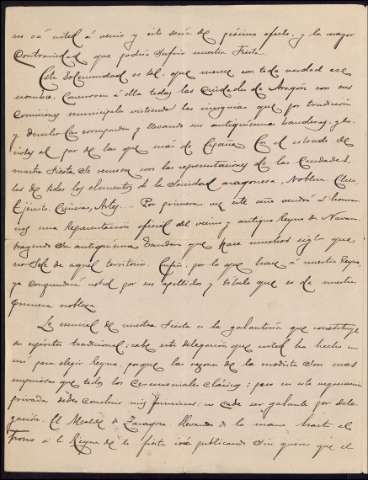 no vá usted á venir y esto sería de pésimo efecto, y la mayor
contrariedad que podría sufrir nuestra Fiesta.
Esta solemnidad es tal, que merece con toda verdad ese
nombre. Concurren á ella todas las Ciudades de Aragón con sus
Comisiones municipales vistiendo las insignias que por tradición
y derecho las corresponden y llevando sus antiquísimas banderas, glo-
riosas al par de las que más de España. En el estrado de
nuestra fiesta se reunen con las representaciones de las Ciudades,
las de todos los elementos de la Sociedad aragonesa, Nobleza, Clero,
Ejército, Ciencias, Artes... Por primera vez este año vendrá á honrar-
nos una Representación oficial del vecino y antiguo Reyno de Navarra
trayendo su antiquísima bandera que hace muchos siglos que
no sale de aquel territorio. En fin, por lo que hace á nuestra Reyna
ya comprenderá usted por su apellido y título que es de nuestra
primera nobleza.
La esencial de nuestra Fiesta es la galantería que constituye
su espíritu tradicional; cabe esta delegación que usted ha hecho en
mi para elegir Reyna, porque las razones de la modestia son mas
imperiosas que todos los ceremoniales clásicos; pero en esta negociación
privada debe concluir mis funciones: no cabe ser galante por dele-
gación. El Alcalde de Zaragoza llevando de la mano hasta el
Trono á la Reyna de la fiesta iría publicando sin querer que el